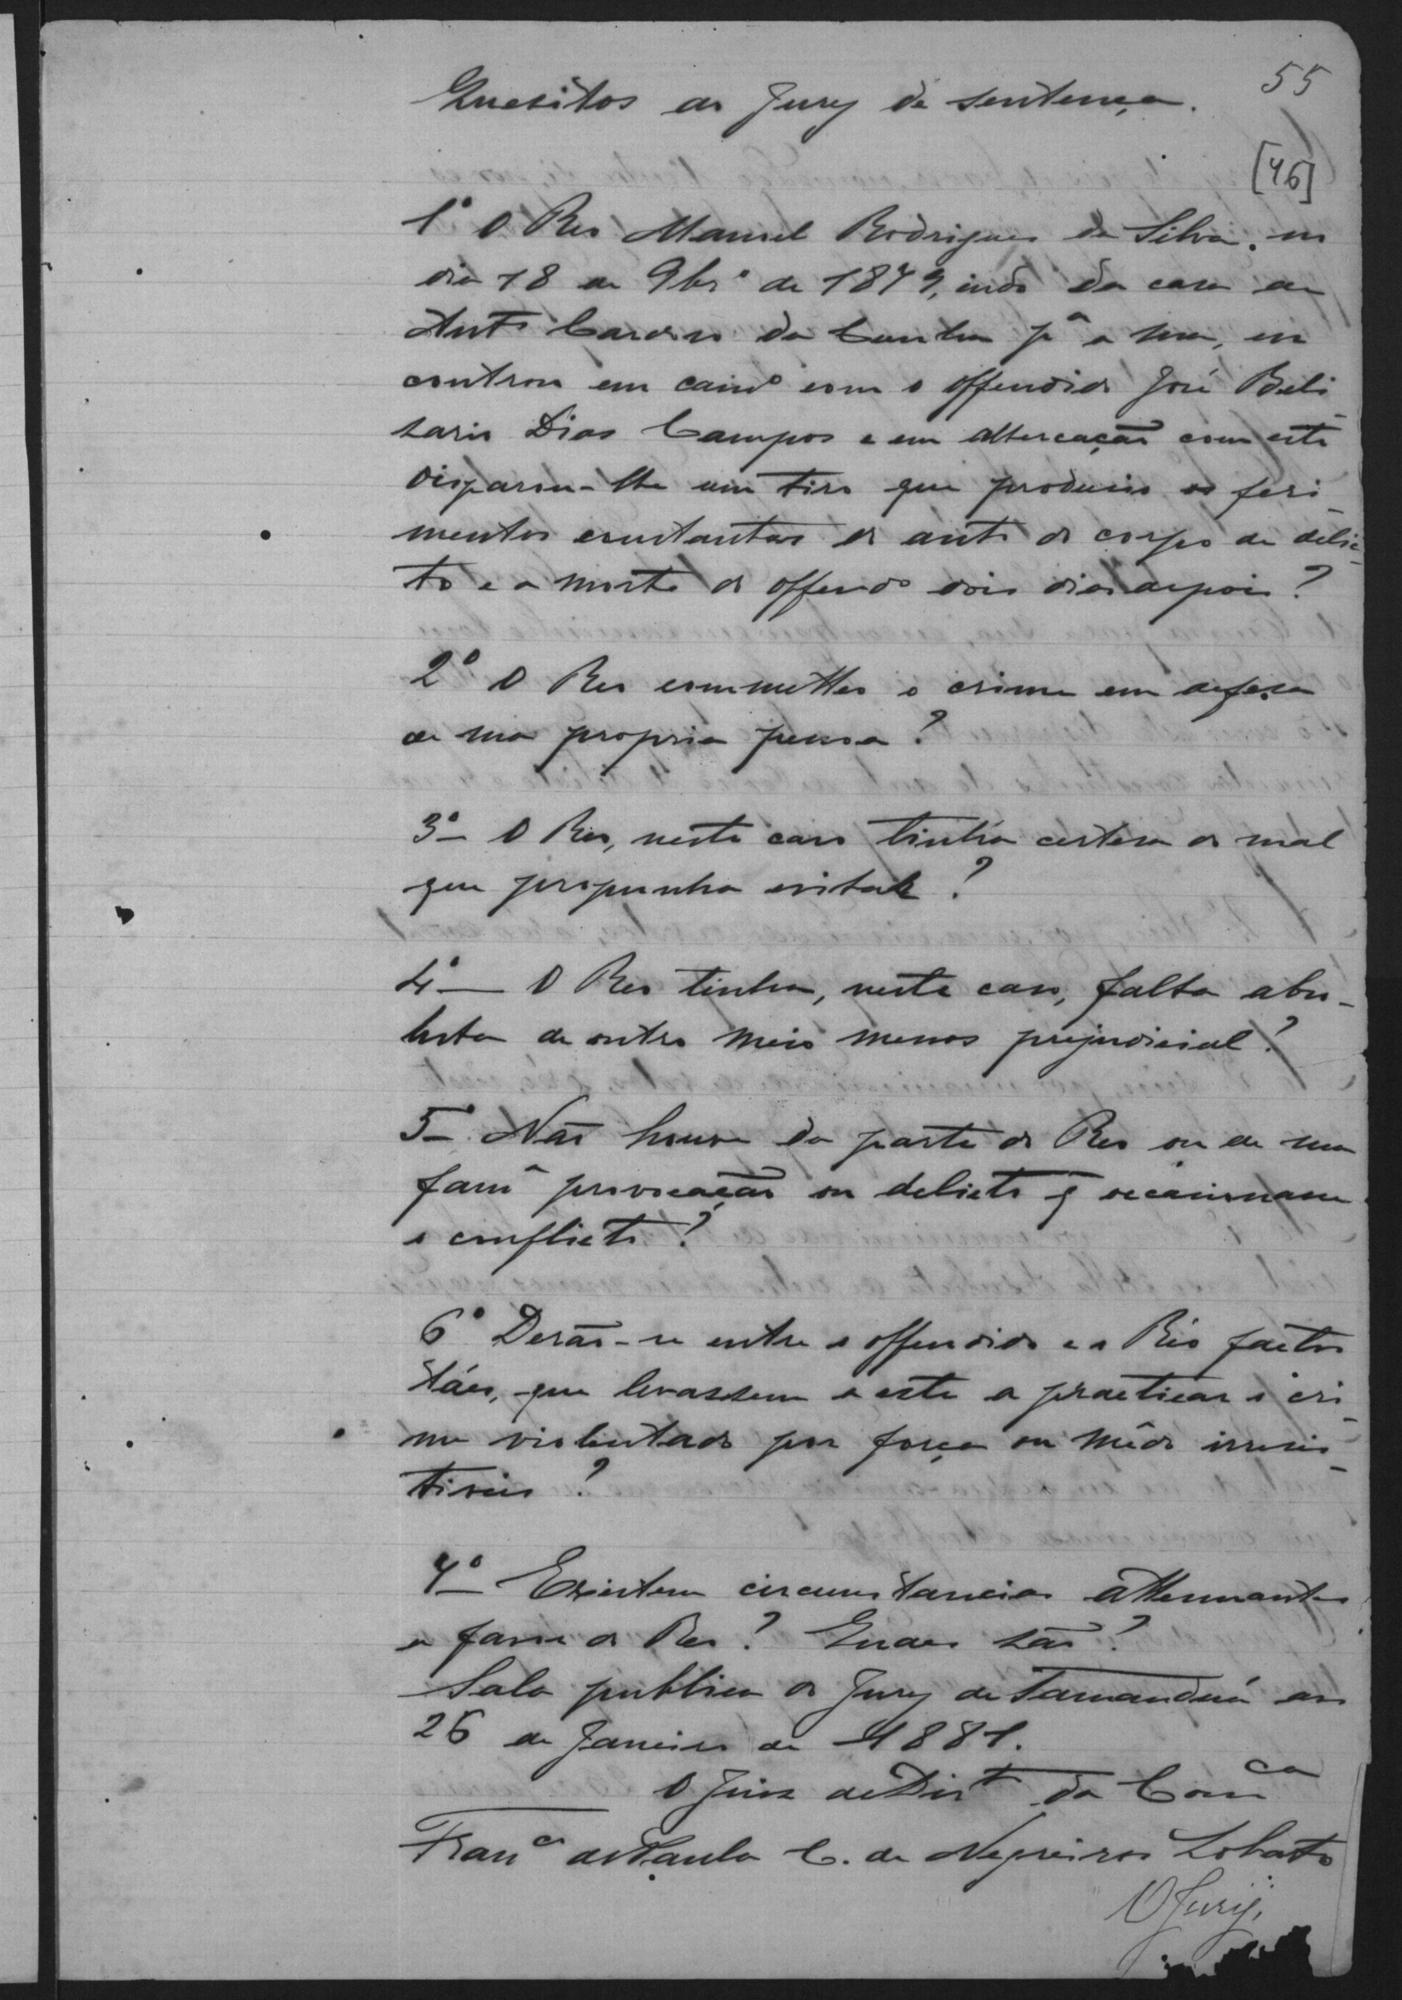 55
Quesitos ao Jury de sentença.
[46]
1º O Reo Manoel Rodrigues da Silva, no
dia 18 de 9brº de 1879, indo da casa de
Antº Cardoso da Cunha pª a sua, en
controu em camº com o offendido José Beli
sario Dias Campos e em altercação com este
disparou-lhe um tiro que produsio os feri-
mentos constantes do auto do corpo de delic-
to e a morte do offendº dois dias depois?
2º O Reo commetteo o crime em defesa
de sua propria pessoa?
3º O Reo, neste caso tinha certesa do mal
que propunha evitar?
4º — O Reo tinha, neste caso, falta abso-
luta de outro meio menos prejudicial?
5º Não houve da parte do Reo ou de sua
famª provocação ou delicto q̃ occasionasse
o conflicto?
6º Derão-se entre o offendido e o Réo factos
táes, que levassem a este a practicar o cri-
me violentado por força ou mêdo irresis-
tiveis?
7º Existem circumstancias attenuantes
a favor do Reo? Quaes são?
Sala publica do Jury de Tamanduá aos
26 de Janeiro de 1881.
O Juiz de Dirtº da Comca
Franco de Paula C. de Negreiros Lobato
O Jury,